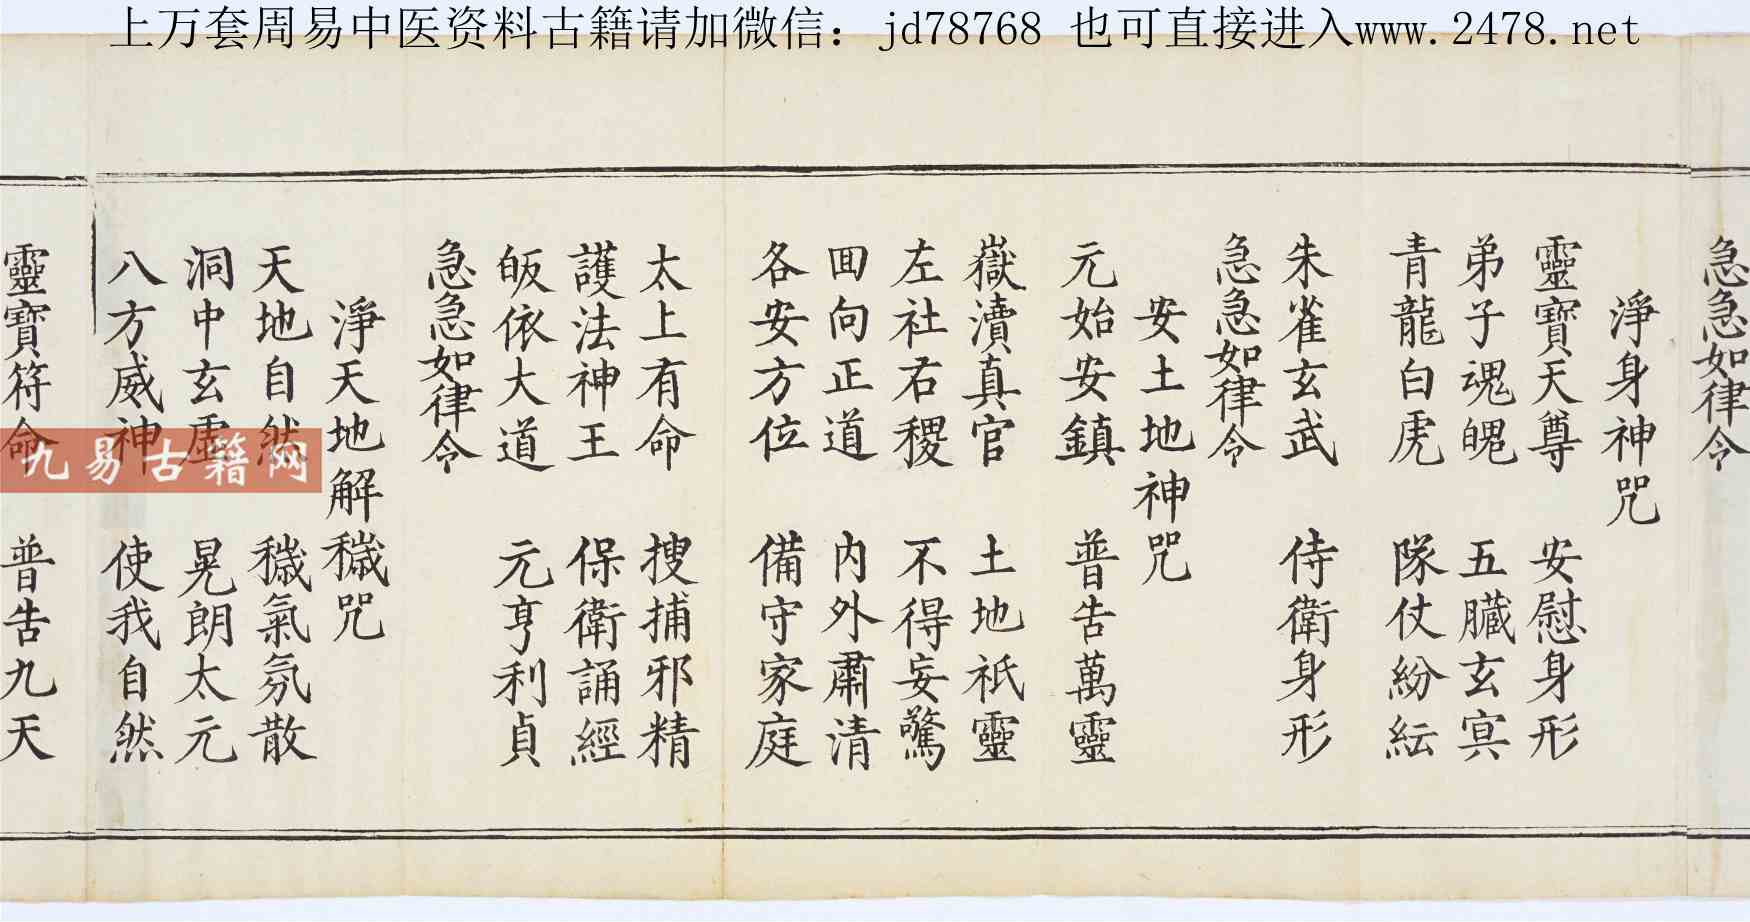 上万套周易中医资料古籍请加微信：jd78768 也可直接进入www.2478.net
急急如律令
淨身神咒
靈寶天尊 安慰身形
弟子魂魄 五臟玄冥
青龍白虎 隊仗紛紜
朱雀玄武 侍衛身形
急急如律令
安土地神咒
元始安鎮 普告萬靈
嶽瀆真官 土地祇靈
左社右稷 不得妄驚
囬向正道 內外肅清
各安方位 備守家庭
太上有命 搜捕邪精
護法神王 保衛誦經
皈依大道 元亨利貞
急急如律令
淨天地解穢咒
天地自然 穢氣氛散
洞中玄虛 晃朗太元
八方威神 使我自然
靈寶符命 普告九天
九易古籍网